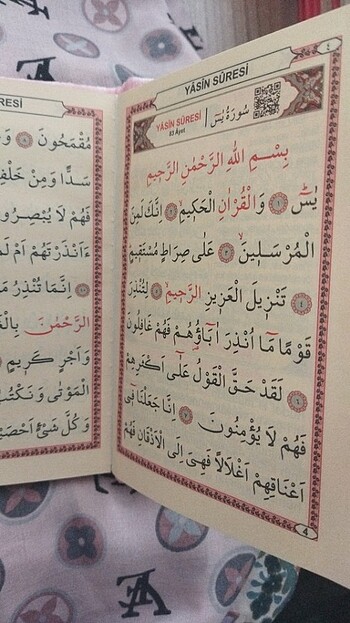 YÂSÎN SÛRESİ
٤
YÂSÎN SÛRESİ
83 Âyet
سُورَةُ يٰسٓ
بِسْمِ اللهِ الرَّحْمٰنِ الرَّحِيمِ
يٰسٓ ﴿١﴾ وَالْقُرْاٰنِ الْحَكِيمِۙ ﴿٢﴾ اِنَّكَ لَمِنَ
الْمُرْسَلِينَۙ ﴿٣﴾ عَلٰى صِرَاطٍ مُسْتَقِيمٍۜ
﴿٤﴾ تَنْزِيلَ الْعَزِيزِ الرَّحِيمِۙ ﴿٥﴾ لِتُنْذِرَ
قَوْمًا مَٓا اُنْذِرَ اٰبَٓاؤُ۬هُمْ فَهُمْ غَافِلُونَ
﴿٦﴾ لَقَدْ حَقَّ الْقَوْلُ عَلٰٓى اَكْثَرِهِمْ
فَهُمْ لَا يُؤْمِنُونَ ﴿٧﴾ اِنَّا جَعَلْنَا ف۪ٓى
اَعْنَاقِهِمْ اَغْلَالًا فَهِىَ اِلَى الْاَذْقَانِ فَهُمْ
4
RESİ
مُقْمَحُونَ ﴿٨﴾
سَدًّا وَمِنْ
فَهُمْ لَا يُبْصِرُو
ءَاَنْذَرْتَهُمْ اَمْ لَمْ
﴿١٠﴾ اِنَّمَا تُنْذِرُ
الرَّحْمٰنَ
وَاَجْرٍ كَرِيمٍ
الْمَوْتٰى وَنَكْتُ
وَكُلَّ شَىْءٍ اَحْصَيْ